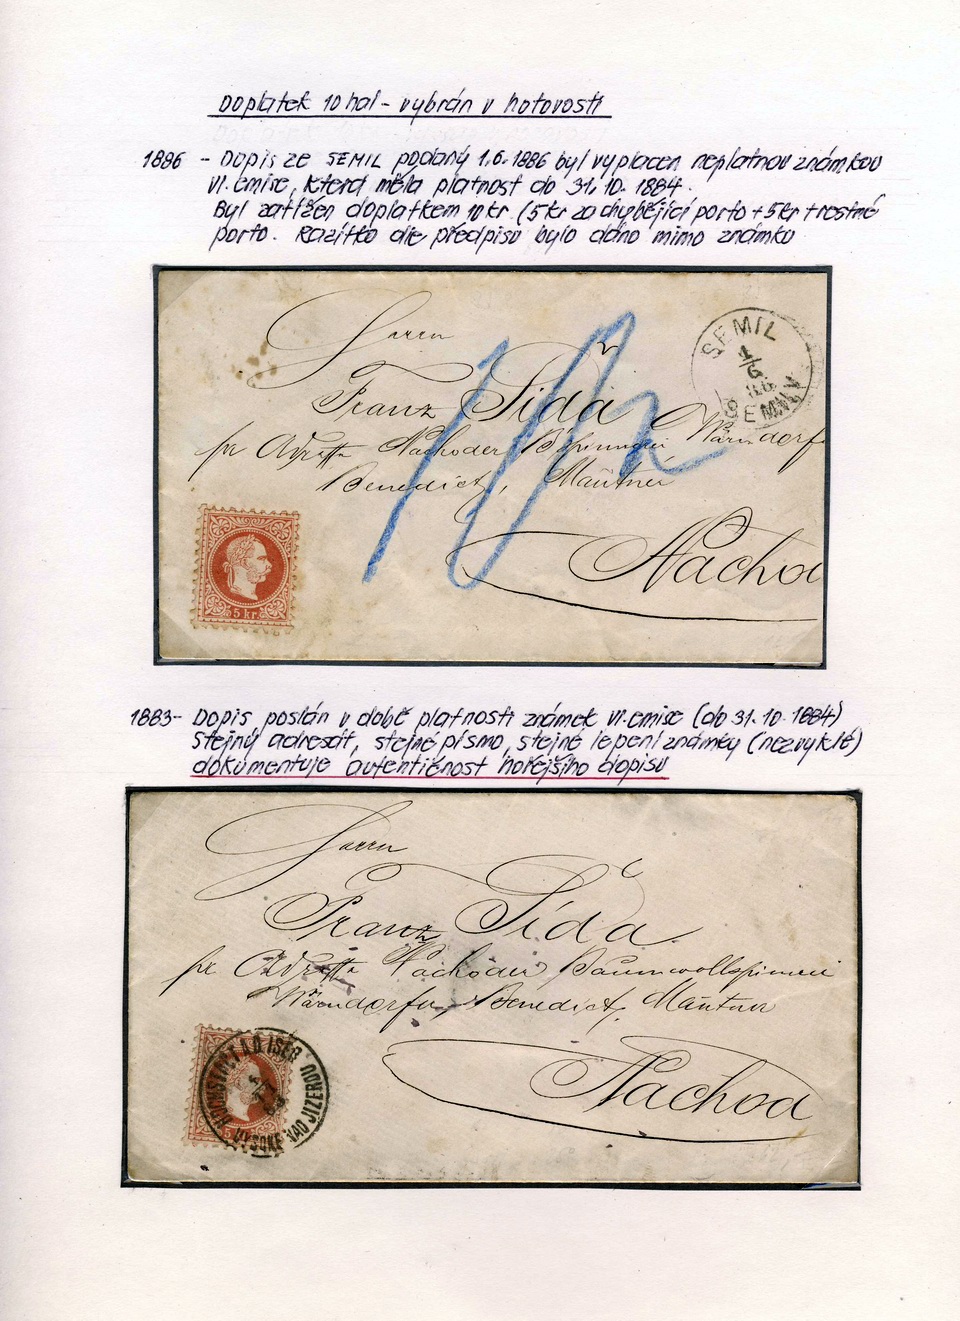 Doplatek 10 hal - vybrán v hotovosti
1886 - Dopis ze SEMIL podaný 1.6.1886 byl vyplacen neplatnou známkou
VI. emise, která měla platnost do 31.10.1884.
Byl zatížen doplatkem 10 kr. (5 kr za chybějící porto + 5 kr trestné
porto. Razítko dle předpisů bylo dáno mimo známku
SEMIL
1/6
86
SEMILY
Herrn
Franz Šída
pr Adresse Nachoder B.spinnerei Wärndorfer
Benedict, Mautner
Nachod
5 kr.
1883 - Dopis poslán v době platnosti známek VI. emise (do 31.10.1884)
Stejný adresát, stejné písmo, stejné lepení známky (nezvyklé)
dokumentuje autentičnost hořejšího dopisu
Herrn
Franz Šída
pr Adresse Nachoder Baumwollspinnerei
Wärndorfer, Benedict, Mautner
Nachod
HOCHSTADT A.D. ISER
VYSOKÉ NAD JIZEROU